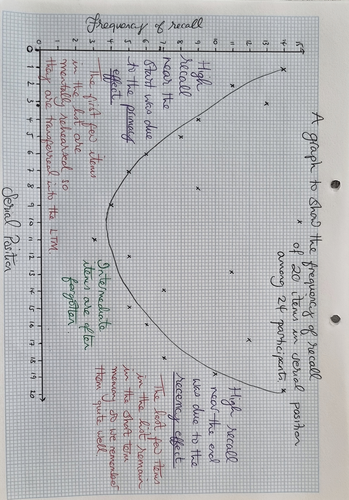 A graph to show the frequency of recall
of 20 items in serial position
among 24 participants.
Frequency of recall
High
recall
near the
start was due
to the primacy
effect
The first few items
in the list are
mentally rehearsed so
they are transferred into the LTM
Intermediate
items are often
forgotten
High recall
near the end
was due to the
recency effect
The last few items
in the list remain
in the short term
memory so we remember
them quite well
0 1 2 3 4 5 6 7 8 9 10 11 12 13 14 15
1 2 3 4 5 6 7 8 9 10 11 12 13 14 15 16 17 18 19 20
Serial Position